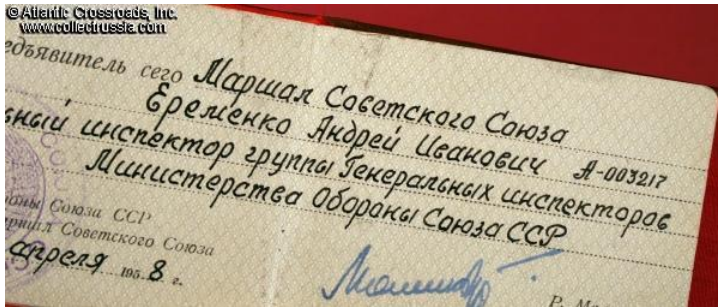 © Atlantic Crossroads, Inc.
www.collectrussia.com
едъявитель сего Маршал Советского Союза
Еременко Андрей Иванович А-003217
ьный инспектор группы Генеральных инспекторов
Министерства Обороны Союза ССР
оны Союза ССР
аршал Советского Союза
апреля 1958 г.
Р. М